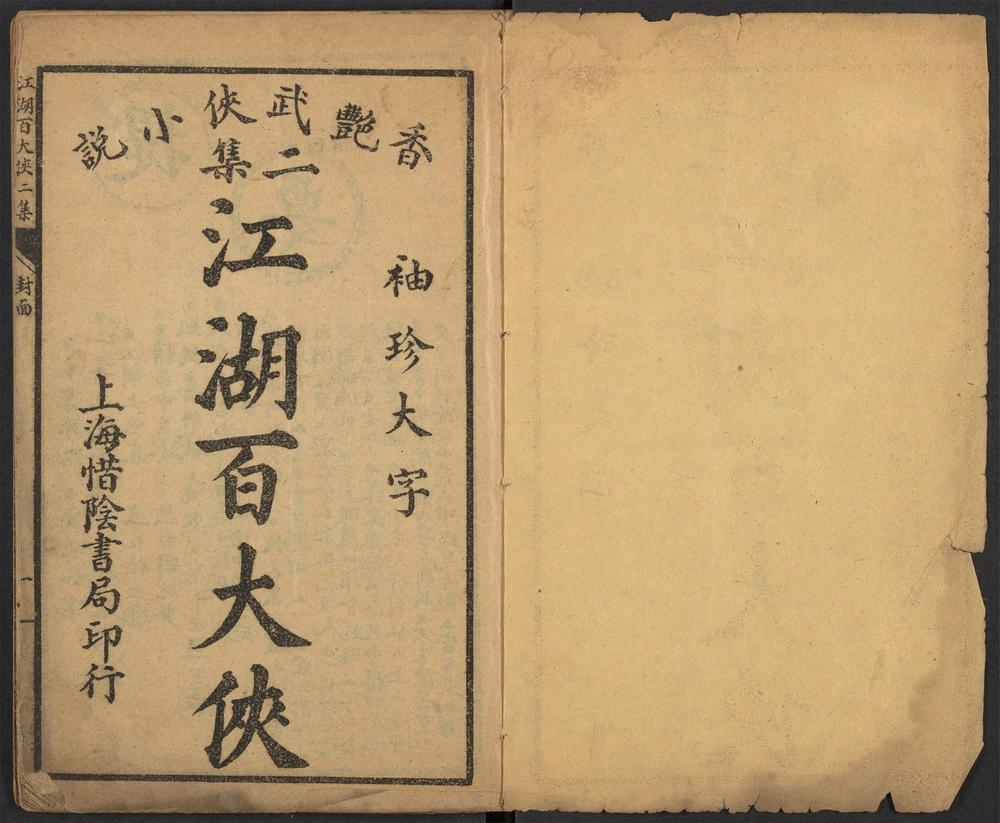 香艷武俠小說
二集
袖珍大字
江湖百大俠
上海惜陰書局印行
江湖百大俠二集
封面